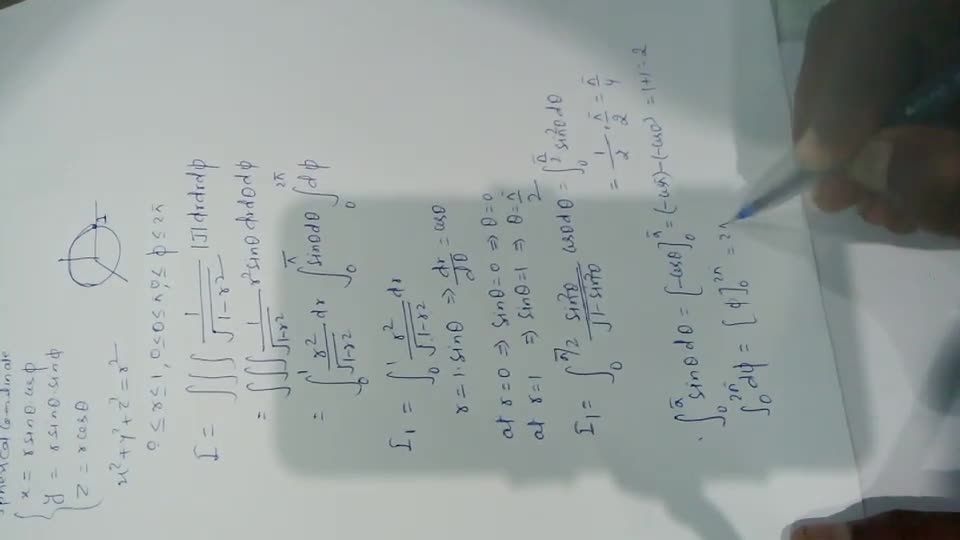 spherical Co-ordinate
x = r sinθ cosφ
y = r sinθ sinφ
z = r cosθ
x² + y² + z² = r²
0 ≤ r ≤ 1, 0 ≤ θ ≤ π, 0 ≤ φ ≤ 2π
I = ∫∫∫ 1/√(1-r²) |J| dr dθ dφ
= ∫∫∫ 1/√(1-r²) r² sinθ dr dθ dφ
= ∫₀¹ r²/√(1-r²) dr ∫₀^π sinθ dθ ∫₀^2π dφ
I₁ = ∫₀¹ r²/√(1-r²) dr
r = 1·sinθ ⇒ dr/dθ = cosθ
at r=0 ⇒ sinθ=0 ⇒ θ=0
at r=1 ⇒ sinθ=1 ⇒ θ=π/2
I₁ = ∫₀^π/2 sin²θ/√(1-sin²θ) cosθ dθ = ∫₀^π/2 sin²θ dθ
= 1/2 · π/2 = π/4
∫₀^π sinθ dθ = [-cosθ]₀^π = (-cosπ)-(-cos0) = 1+1=2
∫₀^2π dφ = [φ]₀^2π = 2π